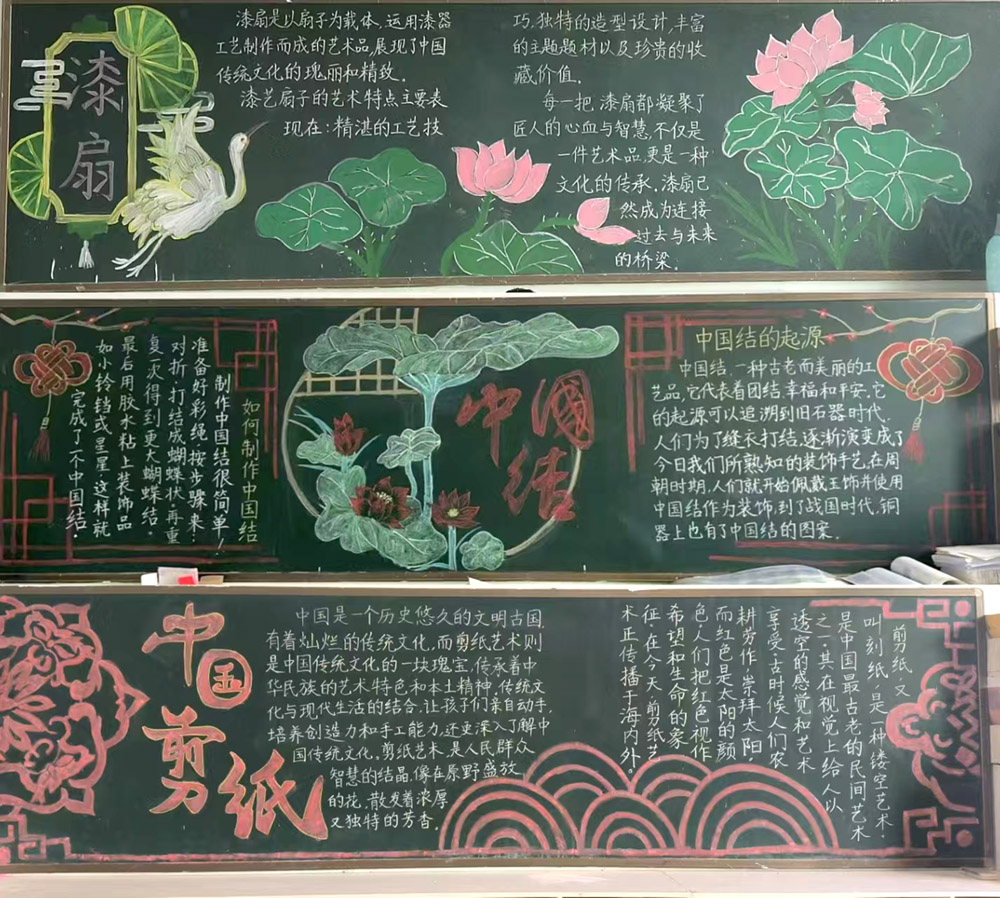 漆扇
漆扇是以扇子为载体、运用漆器
工艺制作而成的艺术品,展现了中国
传统文化的瑰丽和精致。
漆艺扇子的艺术特点主要表
现在:精湛的工艺技
巧、独特的造型设计,丰富
的主题题材以及珍贵的收
藏价值。
每一把漆扇都凝聚了
匠人的心血与智慧,不仅是
一件艺术品,更是一种
文化的传承。漆扇已
然成为连接
过去与未来
的桥梁。
如何制作中国结
制作中国结很简单!
准备好彩绳,按步骤来:
对折,打结成蝴蝶状,再重
复一次得到更大蝴蝶结。
最后用胶水粘上装饰品
如小铃铛或星星,这样就
完成了一个中国结。
中国结
中国结的起源
中国结,一种古老而美丽的工
艺品,它代表着团结、幸福和平安。它
的起源可以追溯到旧石器时代,
人们为了缝衣打结,逐渐演变成了
今日我们所熟知的装饰手艺,在周
朝时期,人们就开始佩戴玉饰并使用
中国结作为装饰,到了战国时代,铜
器上也有了中国结的图案。
中国剪纸
中国是一个历史悠久的文明古国,
有着灿烂的传统文化,而剪纸艺术则
是中国传统文化的一块瑰宝,传承着中
华民族的艺术特色和本土精神,传统文
化与现代生活的结合,让孩子们亲自动手,
培养创造力和手工能力,还更深入了解中
国传统文化。剪纸艺术,是人民群众
智慧的结晶,像在原野盛放
的花,散发着浓厚
又独特的芳香。
剪纸,又
叫刻纸,是一种镂空艺术,
是中国最古老的民间艺术
之一,其在视觉上给人以
透空的感觉和艺术
享受。古时候人们农
耕劳作,崇拜太阳,
而红色是太阳的颜
色,人们把红色视作
希望和生命的象
征,在今天,剪纸艺
术正传播于海内外。